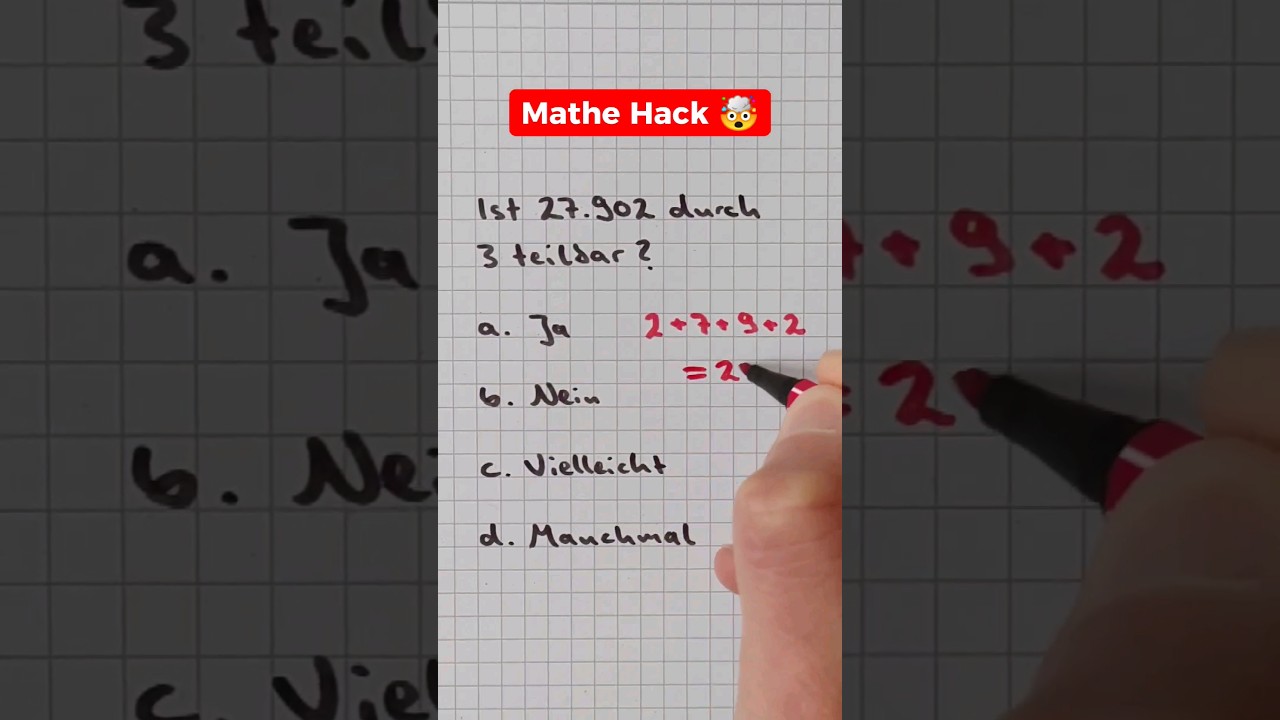 Mathe Hack 🤯
Ist 27.902 durch
3 teilbar?
a. Ja
2+7+9+2
= 2
b. Nein
c. Vielleicht
d. Manchmal